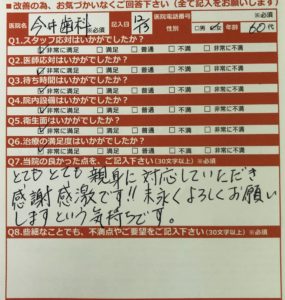 ■改善の為、お気づかいなくご回答下さい（全て記入をお願いします）
医院名 今中歯科 ※必須 記入日 医院電話番号 ※必須 性別 □男 女 年齢 60代
Q1.スタッフ応対はいかがでしたか？
☑非常に満足 □満足 □普通 □不満 □非常に不満
Q2.医師応対はいかがでしたか？
☑非常に満足 □満足 □普通 □不満 □非常に不満
Q3.待ち時間はいかがでしたか？
☑非常に満足 □満足 □普通 □不満 □非常に不満
Q4.院内設備はいかがでしたか？
☑非常に満足 □満足 □普通 □不満 □非常に不満
Q5.衛生面はいかがでしたか？
☑非常に満足 □満足 □普通 □不満 □非常に不満
Q6.治療の満足度はいかがでしたか？
☑非常に満足 □満足 □普通 □不満 □非常に不満
Q7.当院の良かった点を、ご記入下さい（30文字以上）※必須
とてもとても親身に対応していただき
感謝感激です!!末永くよろしくお願い
しますという気持ちです。
Q8.些細なことでも、不満点やご要望をご記入下さい（30文字以上）※必須